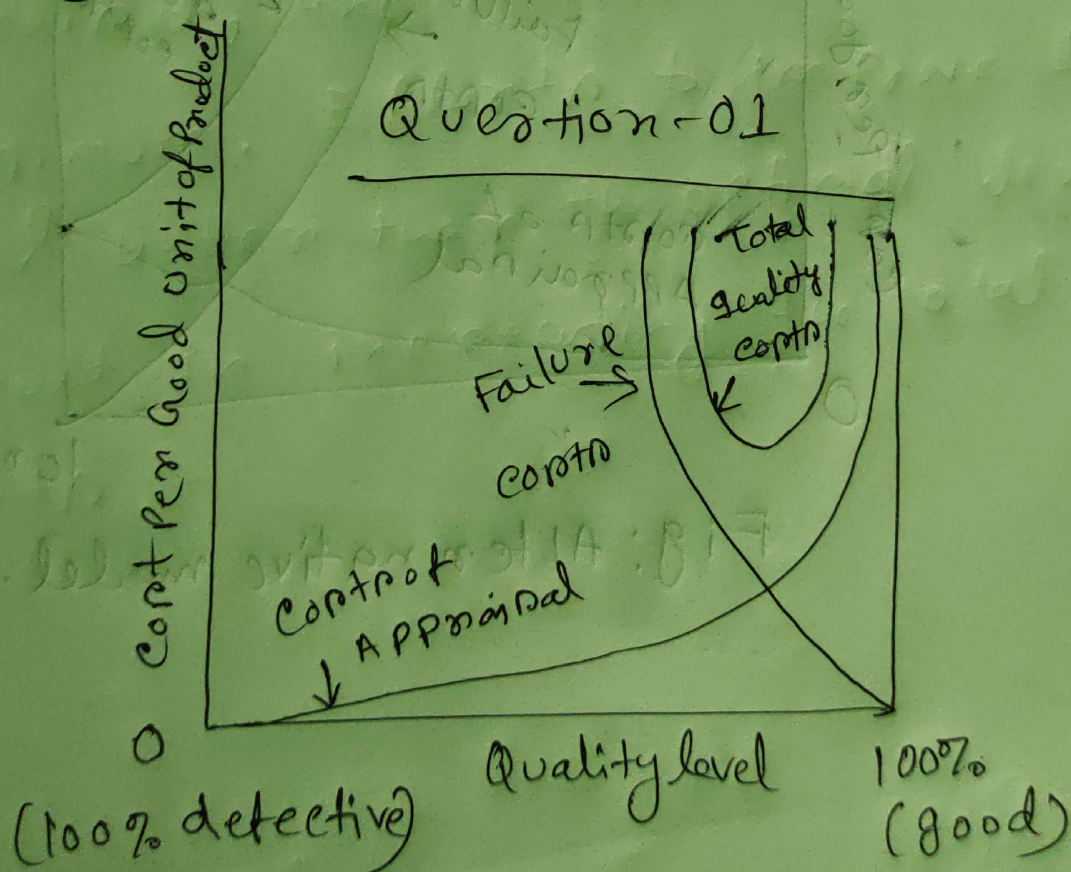 Question-01
Cost Per Good unit of Product
Total
quality
costs
Failure
costs
Costs of
Appraisal
0
Quality level
100%
(100% defective)
(good)